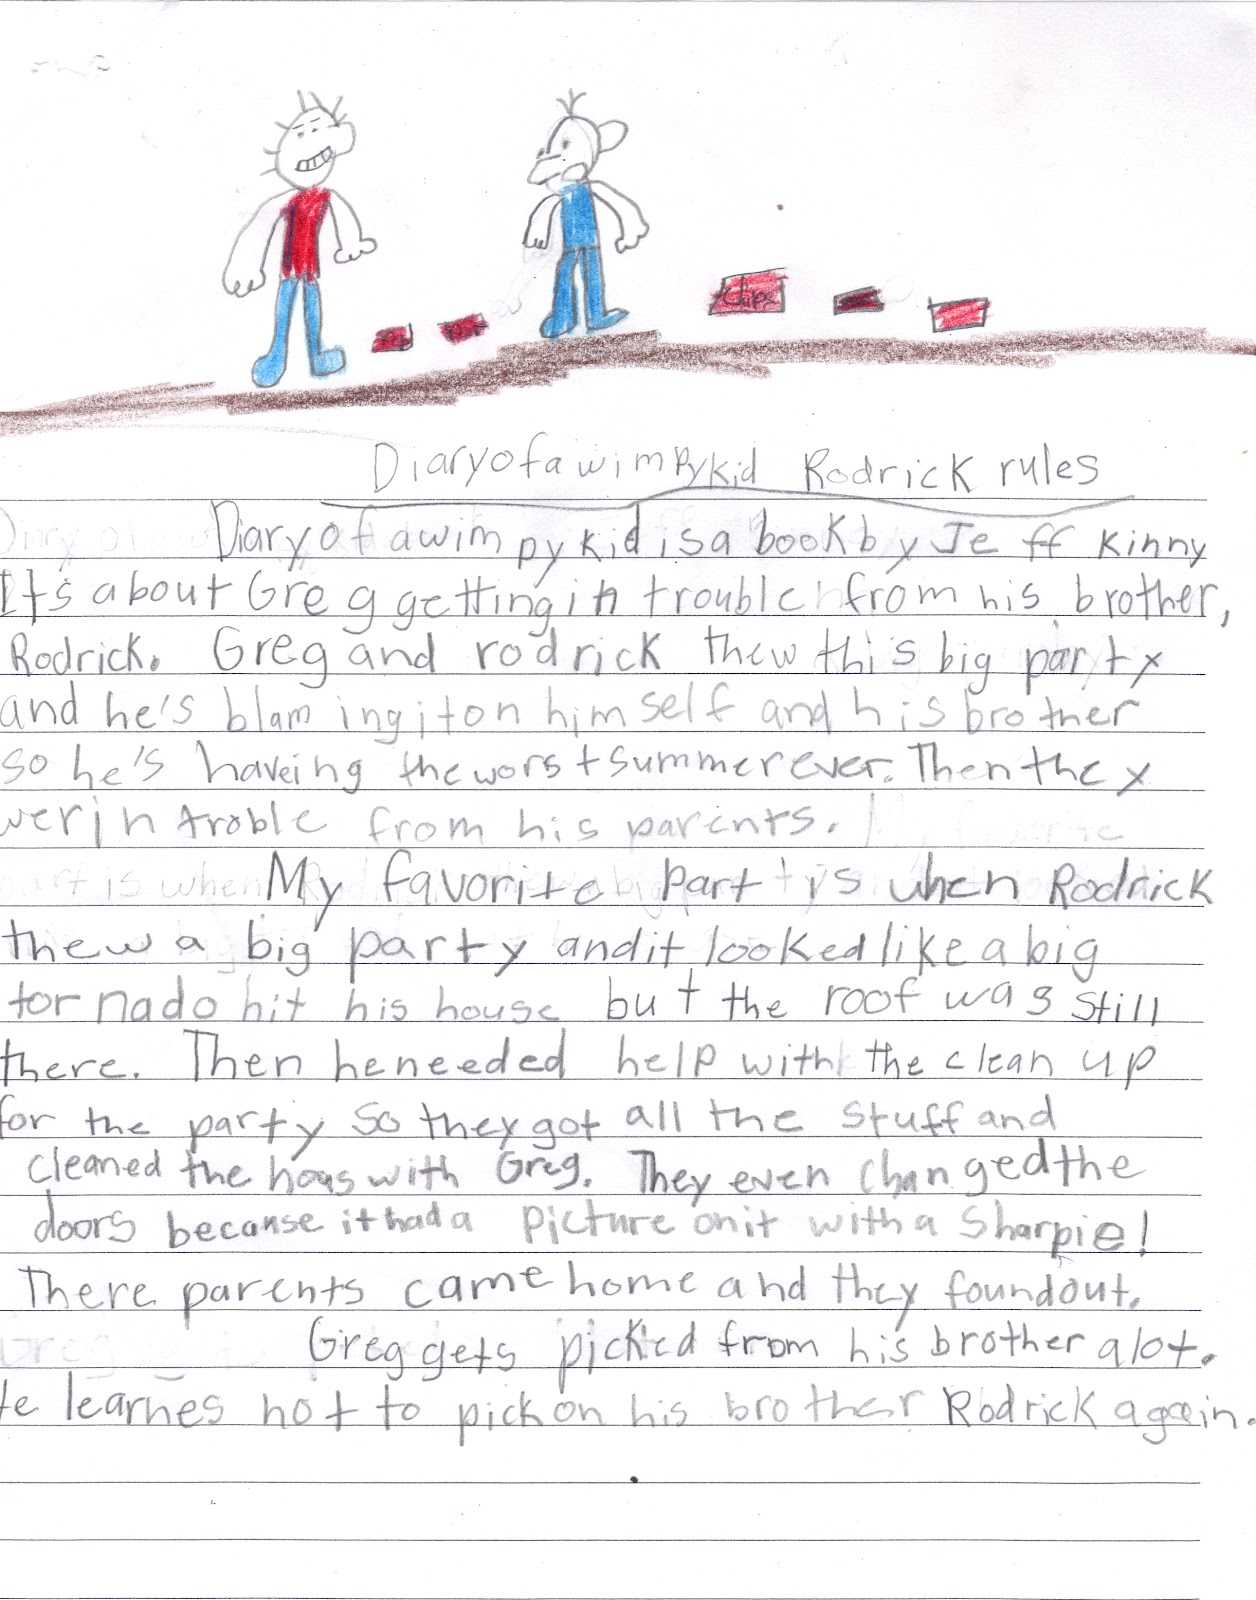 chips
Diary of a wimpy kid Rodrick rules
Diary of a wimpy kid is a book by Jeff Kinny
It's about Greg getting in trouble from his brother,
Rodrick. Greg and rodrick thew this big party
and he's blaming it on him self and his brother
so he's haveing the worst summer ever. Then they
wer in troble from his parents.
My favorite part is when Rodrick
thew a big party and it looked like a big
tornado hit his house but the roof was still
there. Then he needed help with the clean up
for the party so they got all the stuff and
cleaned the hous with Greg. They even changed the
doors becanse it had a picture on it with a sharpie!
There parents came home and they found out.
Greg gets picked from his brother alot.
He learnes not to pick on his brother Rodrick again.